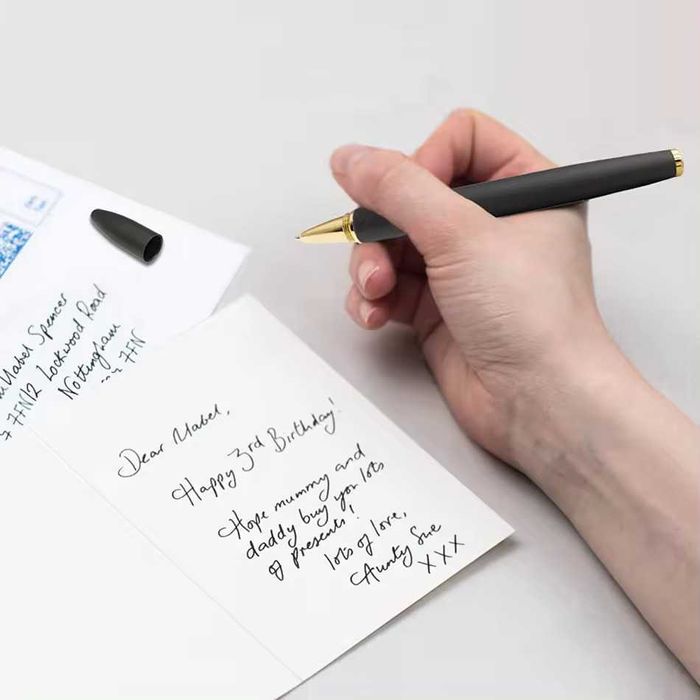 Mabel Spencer
Lockwood Road
Nottingham
7FN
Dear Mabel,
Happy 3rd Birthday!
Hope mummy and
daddy buy you lots
of presents!
lots of love,
Aunty Sue
xxx